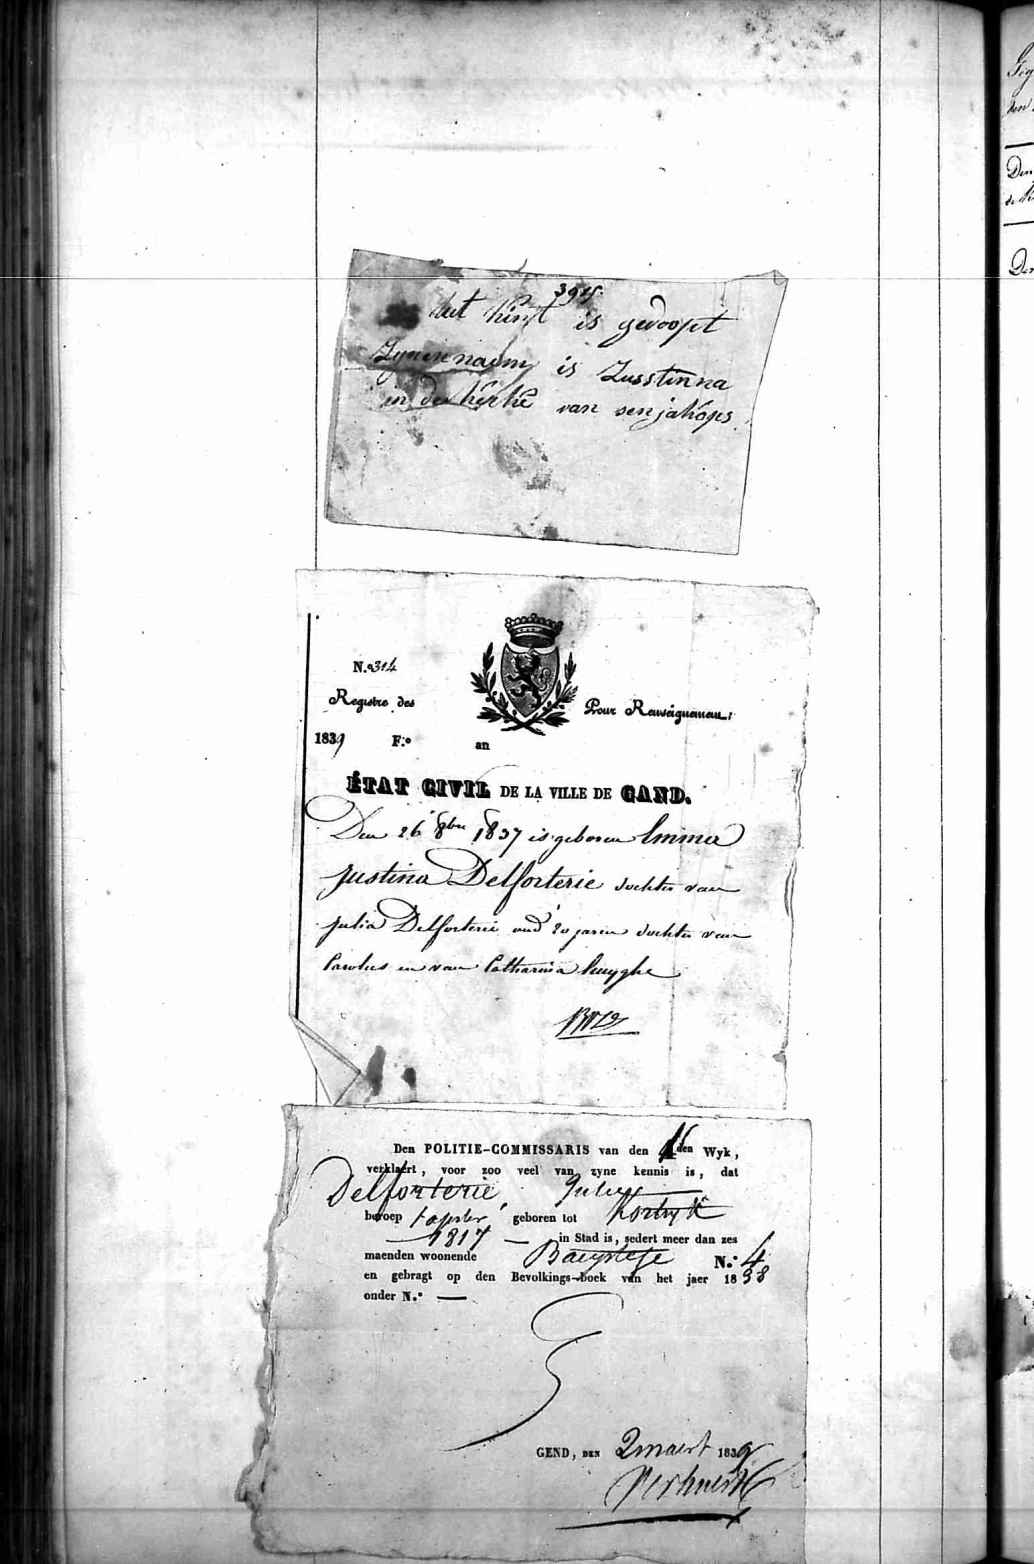 395.
het kint is gedoopt
zynen naem is Zusstinna
in de kerke van senjakops.
N.º 314
Registre des
Pour Renseignement
1839 F.º an
ÉTAT CIVIL DE LA VILLE DE GAND.
Den 26 8bre 1837 is geboren Emma
Justina Delforterie dochter van
Julia Delforterie oud 20 jaren dochter van
Carolus en van Catharina Huyghe
Den POLITIE-COMMISSARIS van den den Wyk,
verklaert, voor zoo veel van zyne kennis is, dat
Delforterie, Julie
beroep geboren tot Kortryk
1817 — in Stad is, sedert meer dan zes
maenden woonende N.º 4
en gebragt op den Bevolkings-boek van het jaer 1838
onder N.º —
GEND, DEN 2 maert 1839